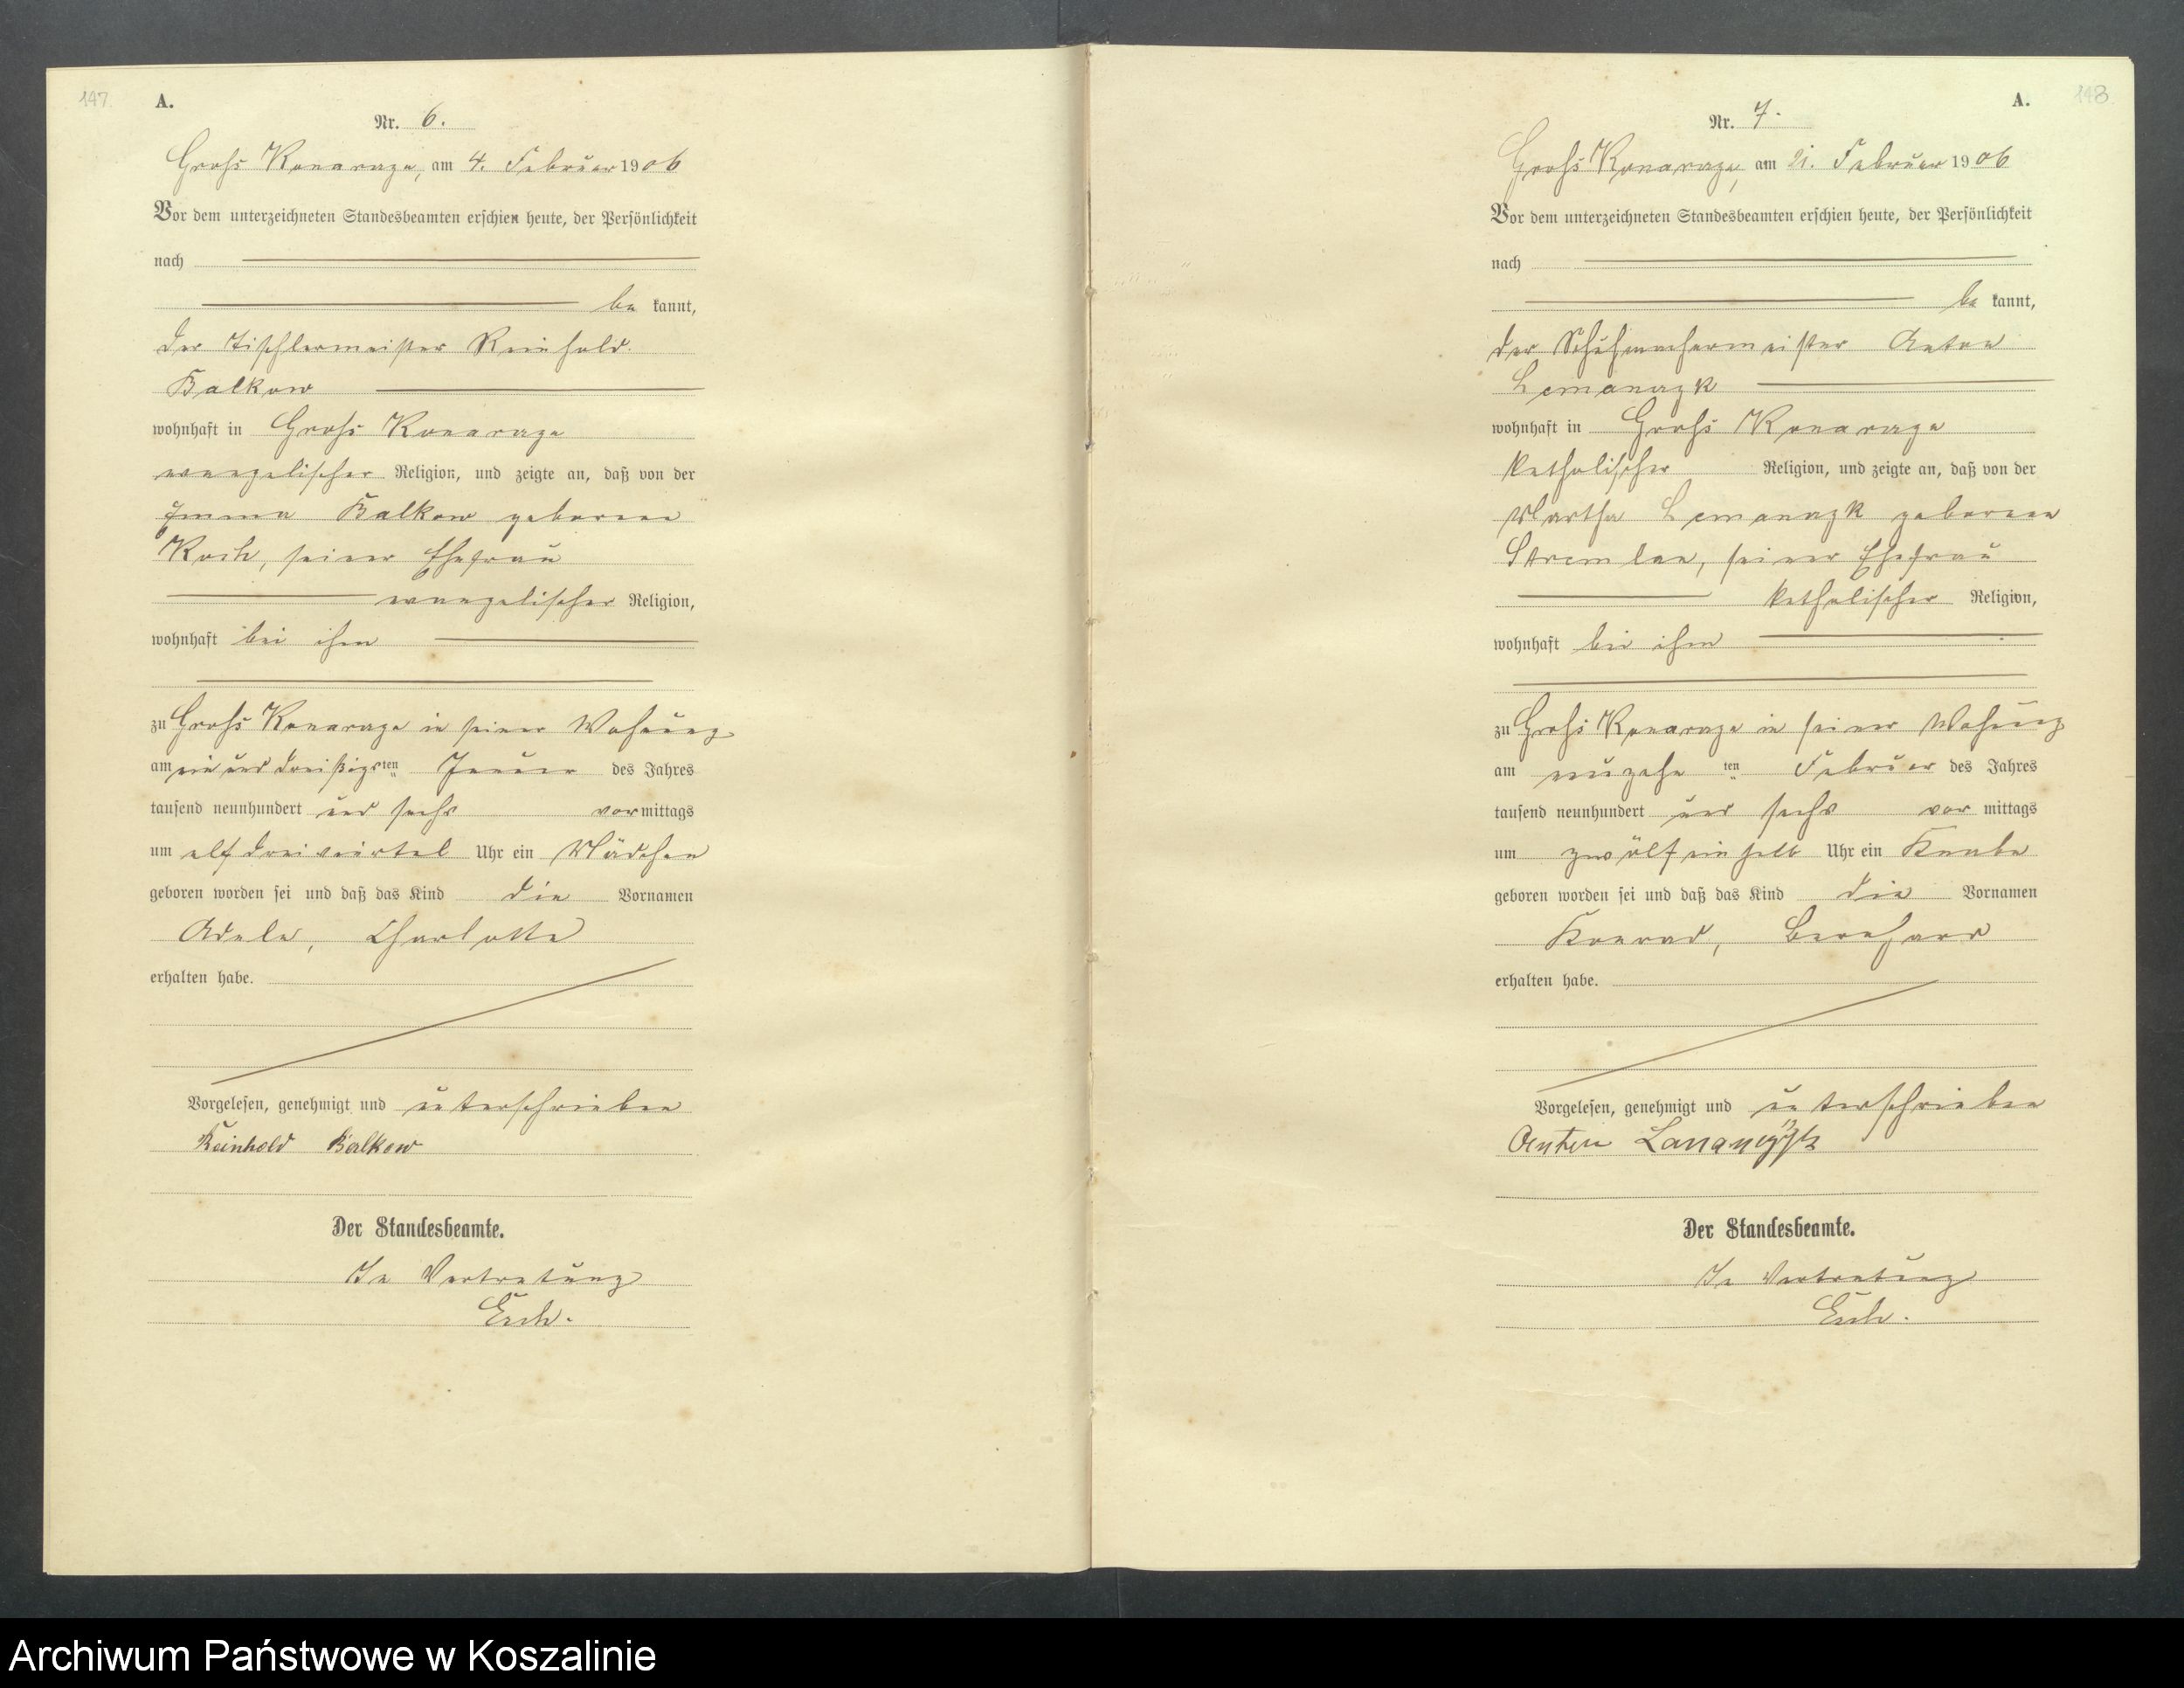 147.
A.
Nr. 6.
Groß Konarczyn, am 4. Februar 1906
Vor dem unterzeichneten Standesbeamten erschien heute, der Persönlichkeit
nach
be kannt,
der Tischlermeister Reinhold
Balkow
wohnhaft in Groß Konarczyn
evangelischer Religion, und zeigte an, daß von der
Emma Balkow geborene
Koch, seiner Ehefrau
evangelischer Religion,
wohnhaft bei ihm
zu Groß Konarczyn in seiner Wohnung
am ein und dreißigsten Januar des Jahres
tausend neunhundert und sechs vormittags
um elf dreiviertel Uhr ein Mädchen
geboren worden sei und daß das Kind die Vornamen
Adele, Charlotte
erhalten habe.
Vorgelesen, genehmigt und unterschrieben
Reinhold Balkow
Der Standesbeamte.
In Vertretung
148.
A.
Nr. 7.
Groß Konarczyn, am 21. Februar 1906
Vor dem unterzeichneten Standesbeamten erschien heute, der Persönlichkeit
nach
be kannt,
der Schuhmachermeister Anton
wohnhaft in Groß Konarczyn
katholischer Religion, und zeigte an, daß von der
Martha geborene
seiner Ehefrau
katholischer Religion,
wohnhaft bei ihm
zu Groß Konarczyn in seiner Wohnung
am neunzehnten Februar des Jahres
tausend neunhundert und sechs vor mittags
um zwölf ein halb Uhr ein Knabe
geboren worden sei und daß das Kind die Vornamen
Konrad, Bernhard
erhalten habe.
Vorgelesen, genehmigt und unterschrieben
Anton
Der Standesbeamte.
In Vertretung
Archiwum Państwowe w Koszalinie